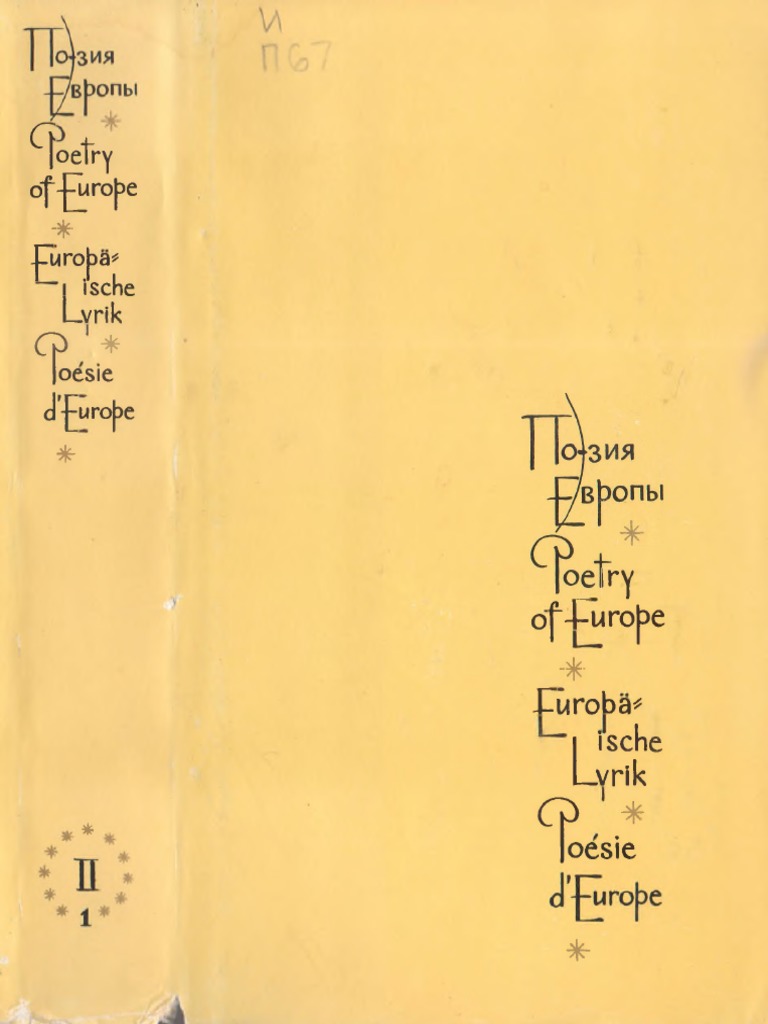 Поэзия
Европы
Poetry
of Europe
Europä=
ische
Lyrik
Poésie
d'Europe
II
1
И
П67
Поэзия
Европы
Poetry
of Europe
Europä=
ische
Lyrik
Poésie
d'Europe